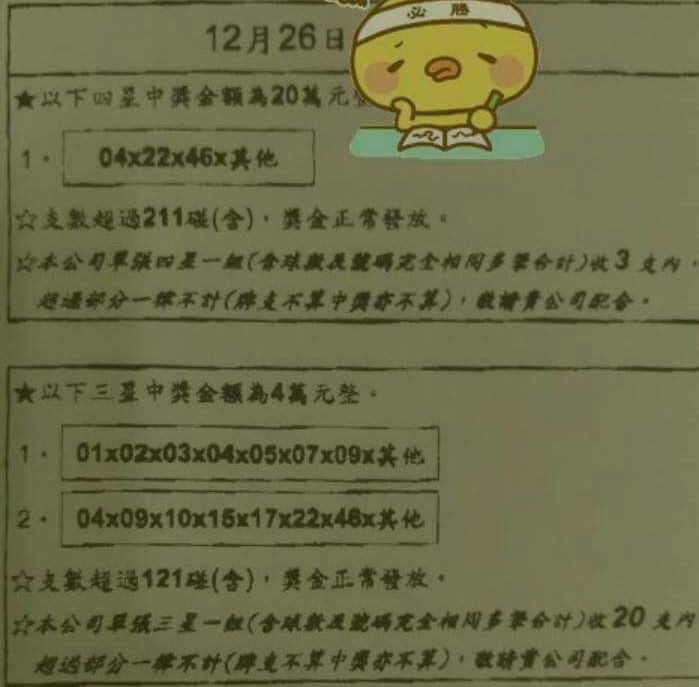 必勝
12月26日
★以下四星中獎金額為20萬元整
1. 04x22x46x其他
☆支數超過211碰(含),獎金正常發放。
☆本公司單張四星一組(含球數及號碼完全相同多筆合計)收3支內,
超過部分一律不計(牌支不算中獎亦不算),敬請貴公司配合。
★以下三星中獎金額為4萬元整。
1. 01x02x03x04x05x07x09x其他
2. 04x09x10x15x17x22x46x其他
☆支數超過121碰(含),獎金正常發放。
☆本公司單張三星一組(含球數及號碼完全相同多筆合計)收20支內
超過部分一律不計(牌支不算中獎亦不算),敬請貴公司配合。